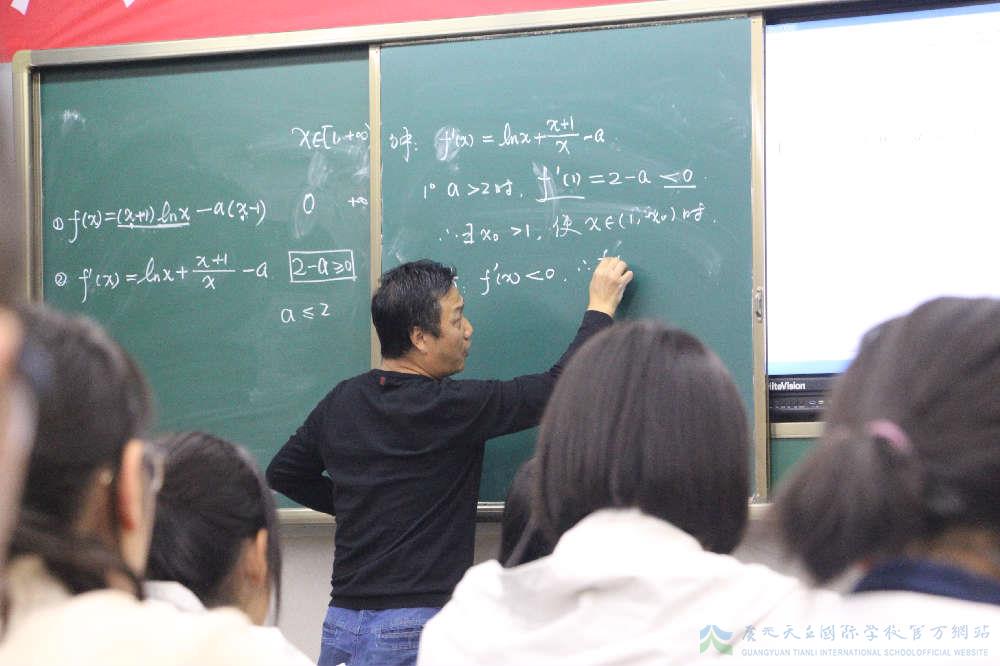 x∈[1,+∞)
① f(x)=(x+1)lnx-a(x-1)
0 +∞
② f'(x)=lnx+\frac{x+1}{x}-a
2-a≥0
a≤2
f'(x)=lnx+\frac{x+1}{x}-a.
1° a>2时, f'(1)=2-a<0.
∴∃x₀>1, 使x∈(1,x₀)时.
f'(x)<0. ∴f
iteVision
广元天立國际学校官方網站
GUANGYUAN TIANLI INTERNATIONAL SCHOOL OFFICIAL WEBSITE